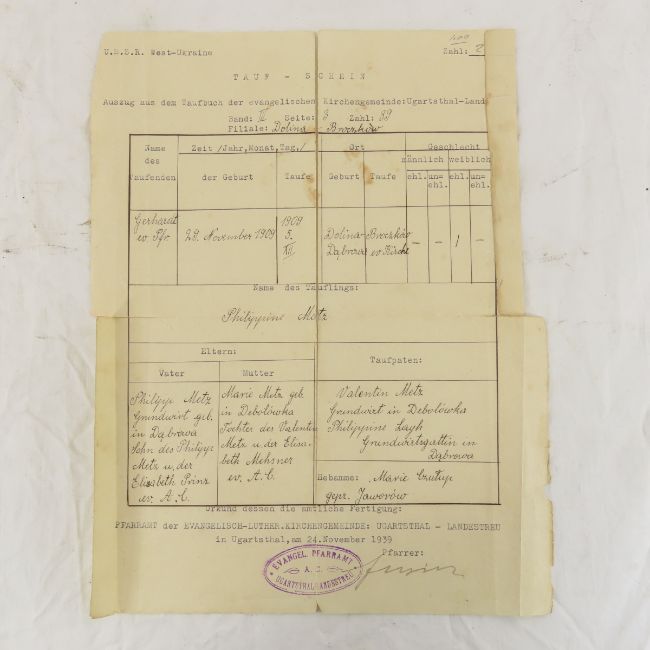 U.S.S.R. West-Ukraine
Zahl:
TAUF - SCHEIN
Auszug aus dem Taufbuch der evangelischen Kirchengemeinde:Ugartsthal-Land
Band: Seite: 8 Zahl: 89
Filiale: Dolina Broczków
Name des Taufenden
Zeit /Jahr,Monat,Tag,/
der Geburt
Taufe
Ort
Geburt
Taufe
Geschlecht
männlich weiblich
ehl. un=ehl. ehl. un=ehl.
Gerhardt
ev Pfr
29. November 1909
1909
5.
XII
Dolina-
Dąbrowa
Broczków
ev Kirche
- - 1 -
Name des Täuflings:
Philippine Metz
Eltern:
Vater
Mutter
Taufpaten:
Philipp Metz
Grundwirt geb.
in Dąbrowa
Sohn des Philipp
Metz u. der
Elisabeth Prinz
ev. A.C.
Marie Metz geb.
in Debolówka
Tochter des Valentin
Metz u. der Elisa-
beth
ev. A.C.
Valentin Metz
Grundwirt in Debolówka
Philippine
Grundwirtsgattin in
Dąbrowa
Hebamme: Marie
gepr. Jaworów
Urkund dessen die amtliche Fertigung:
PFARRAMT der EVANGELISCH-LUTHER.KIRCHENGEMEINDE: UGARTSTHAL - LANDESTREU
in Ugartsthal,am 24.November 1939
Pfarrer:
EVANGEL. PFARRAMT
A. C.
UGARTSTHAL-LANDESTREU